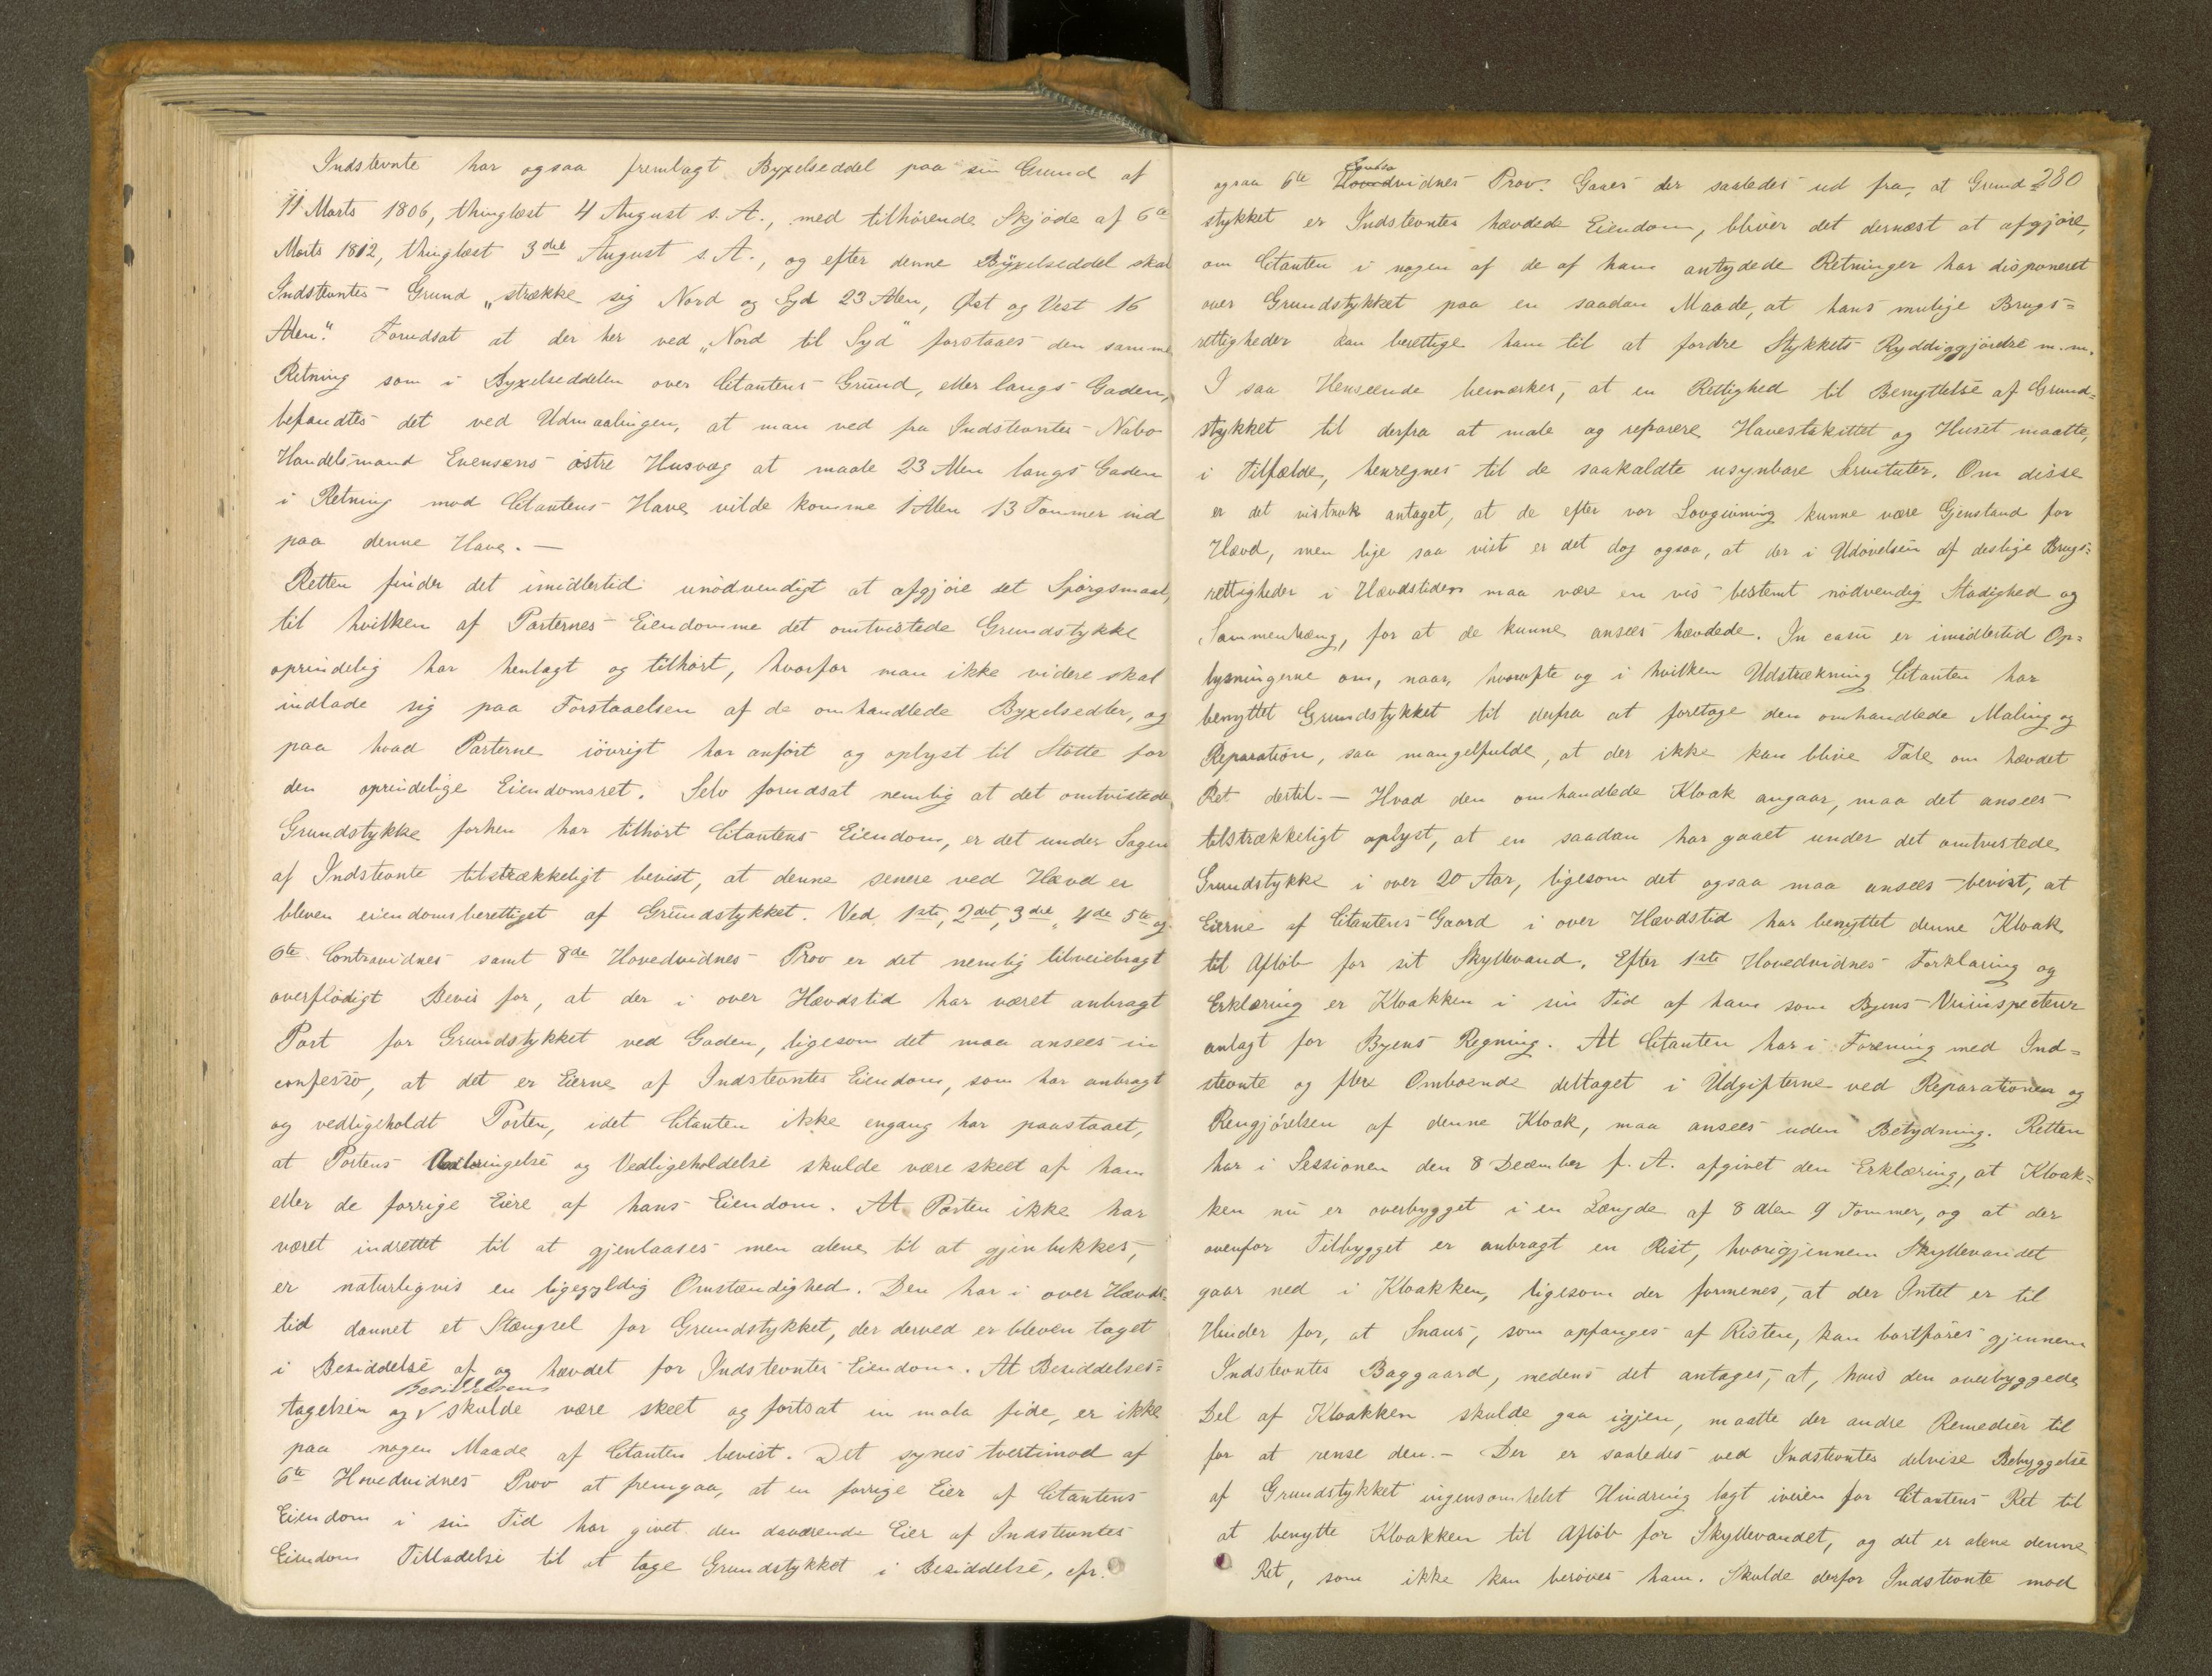 Indstevnte har ogsaa fremlagt Byxelseddel paa sin Grund af
11 Marts 1806, thinglæst 4 August s. A., med tilhørende Skjøde af 6te
Marts 1812, thinglæst 3die August s. A., og efter denne Byxelseddel skal
Indstevntes Grund „strække sig Nord og Syd 23 Alen, Øst og Vest 16
Alen". Forudsat at der her ved „Nord til Syd" forstaaes den samme
Retning som i Byxelseddelen over Citantens Grund, eller langs Gaden,
befandtes det ved Udmaalingen, at man ved fra Indstevntes Nabo
Handelsmand Evensens østre Husvæg at maale 23 Alen langs Gaden
i Retning mod Citantens Have vilde komme 1 Alen 13 Tommer ind
paa denne Have. —
Retten finder det imidlertid unødvendigt at afgjøre det Spørgsmaal,
til hvilken af Parternes Eiendomme det omtvistede Grundstykke
oprindelig har henlagt og tilhørt, hvorfor man ikke videre skal
indlade sig paa Forstaaelsen af de omhandlede Byxelsedler, og
paa hvad Parterne iøvrigt har anført og oplyst til Støtte for
den oprindelige Eiendomsret. Selv forudsat nemlig at det omtvistede
Grundstykke forhen har tilhørt Citantens Eiendom, er det under Sagen
af Indstevnte tilstrækkeligt bevist, at denne senere ved Hævd er
bleven eiendomsberettiget af Grundstykket. Ved 1ste, 2det, 3die, 4de 5te og
6te Contravidnes samt 8de Hovedvidnes Prov er det nemlig tilveiebragt
overflødigt Bevis for, at der i over Hævdstid har været anbragt
Port for Grundstykket ved Gaden, ligesom det maa ansees in
confesso, at det er Eierne af Indstevntes Eiendom, som har anbragt
og vedligeholdt Porten, idet Citanten ikke engang har paastaaet,
at Portens Anbringelse og Vedligeholdelse skulde være skeet af ham
eller de forrige Eiere af hans Eiendom. At Porten ikke har
været indrettet til at gjenlaases men alene til at gjenlukkes,
er naturligvis en ligegyldig Omstændighed. Den har i over Hævds-
tid dannet et Stængsel for Grundstykket, der derved er bleven taget
i Besiddelse af og hævdet for Indstevntes Eiendom. At Besiddelses-
Besiddelsens
tagelsen og √ skulde være skeet og fortsat in mala fide, er ikke
paa nogen Maade af Citanten bevist. Det synes tvertimod af
6te Hovedvidnes Prov at fremgaa, at en forrige Eier af Citantens
Eiendom i sin Tid har givet den daværende Eier af Indstevntes
Eiendom Tilladelse til at tage Grundstykket i Besiddelse, cfr.
280
ogsaa 6te Hovedvidnes Prov. Gaaes der saaledes ud fra, at Grund-
stykket er Indstevntes hævdede Eiendom, bliver det dernæst at afgjøre,
om Citanten i nogen af de af ham antydede Retninger har disponeret
over Grundstykket paa en saadan Maade, at hans mulige Brugs-
rettigheder kan berettige ham til at fordre Stykkets Ryddiggjørelse m.m.
I saa Henseende bemærkes, at en Rettighed til Benyttelse af Grund-
stykket til derfra at male og reparere Havestakittet og Huset maatte,
i Tilfælde, henregnes til de saakaldte usynbare Servituter. Om disse
er det vistnok antaget, at de efter vor Lovgivning kunne være Gjenstand for
Hævd, men lige saa vist er det dog ogsaa, at der i Udøvelsen af deslige Brugs-
rettigheder i Hævdstiden maa være en vis bestemt nødvendig Stadighed og
Sammenhæng, for at de kunne ansees hævdede. In casu er imidlertid Op-
lysningerne om, naar, hvorofte og i hvilken Udstrækning Citanten har
benyttet Grundstykket til derfra at foretage den omhandlede Maling og
Reparation, saa mangelfulde, at der ikke kan blive Tale om hævdet
Ret dertil. — Hvad den omhandlede Kloak angaar, maa det ansees
tilstrækkeligt oplyst, at en saadan har gaaet under det omtvistede
Grundstykke i over 20 Aar, ligesom det ogsaa maa ansees bevist, at
Eierne af Citantens Gaard i over Hævdstid har benyttet denne Kloak
til Afløb for sit Skyllevand. Efter 1ste Hovedvidnes Forklaring og
Erklæring er Kloakken i sin Tid af ham som Byens Veiinspecteur
anlagt for Byens Regning. At Citanten har i Forening med Ind-
stevnte og flere Omboende deltaget i Udgifterne ved Reparationen og
Rengjørelsen af denne Kloak, maa ansees uden Betydning. Retten
har i Sessionen den 8 December f. A. afgivet den Erklæring, at Kloak-
ken nu er overbygget i en Længde af 8 Alen 9 Tommer, og at der
ovenfor Tilbygget er anbragt en Rist, hvorigjennem Skyllevandet
gaar ned i Kloakken, ligesom der formenes, at der Intet er til
Hinder for, at Snaus, som opfanges af Risten, kan bortføres gjennem
Indstevntes Baggaard, medens det antages, at, hvis den overbyggede
Del af Kloakken skulde gaa igjen, maatte der andre Remedier til
for at rense den. — Der er saaledes ved Indstevntes delvise Bebyggelse
af Grundstykket ingensomhelst Hindring lagt iveien for Citantens Ret til
at benytte Kloakken til Afløb for Skyllevandet, og det er alene denne
Ret, som ikke kan berøves ham. Skulde derfor Indstevnte mod